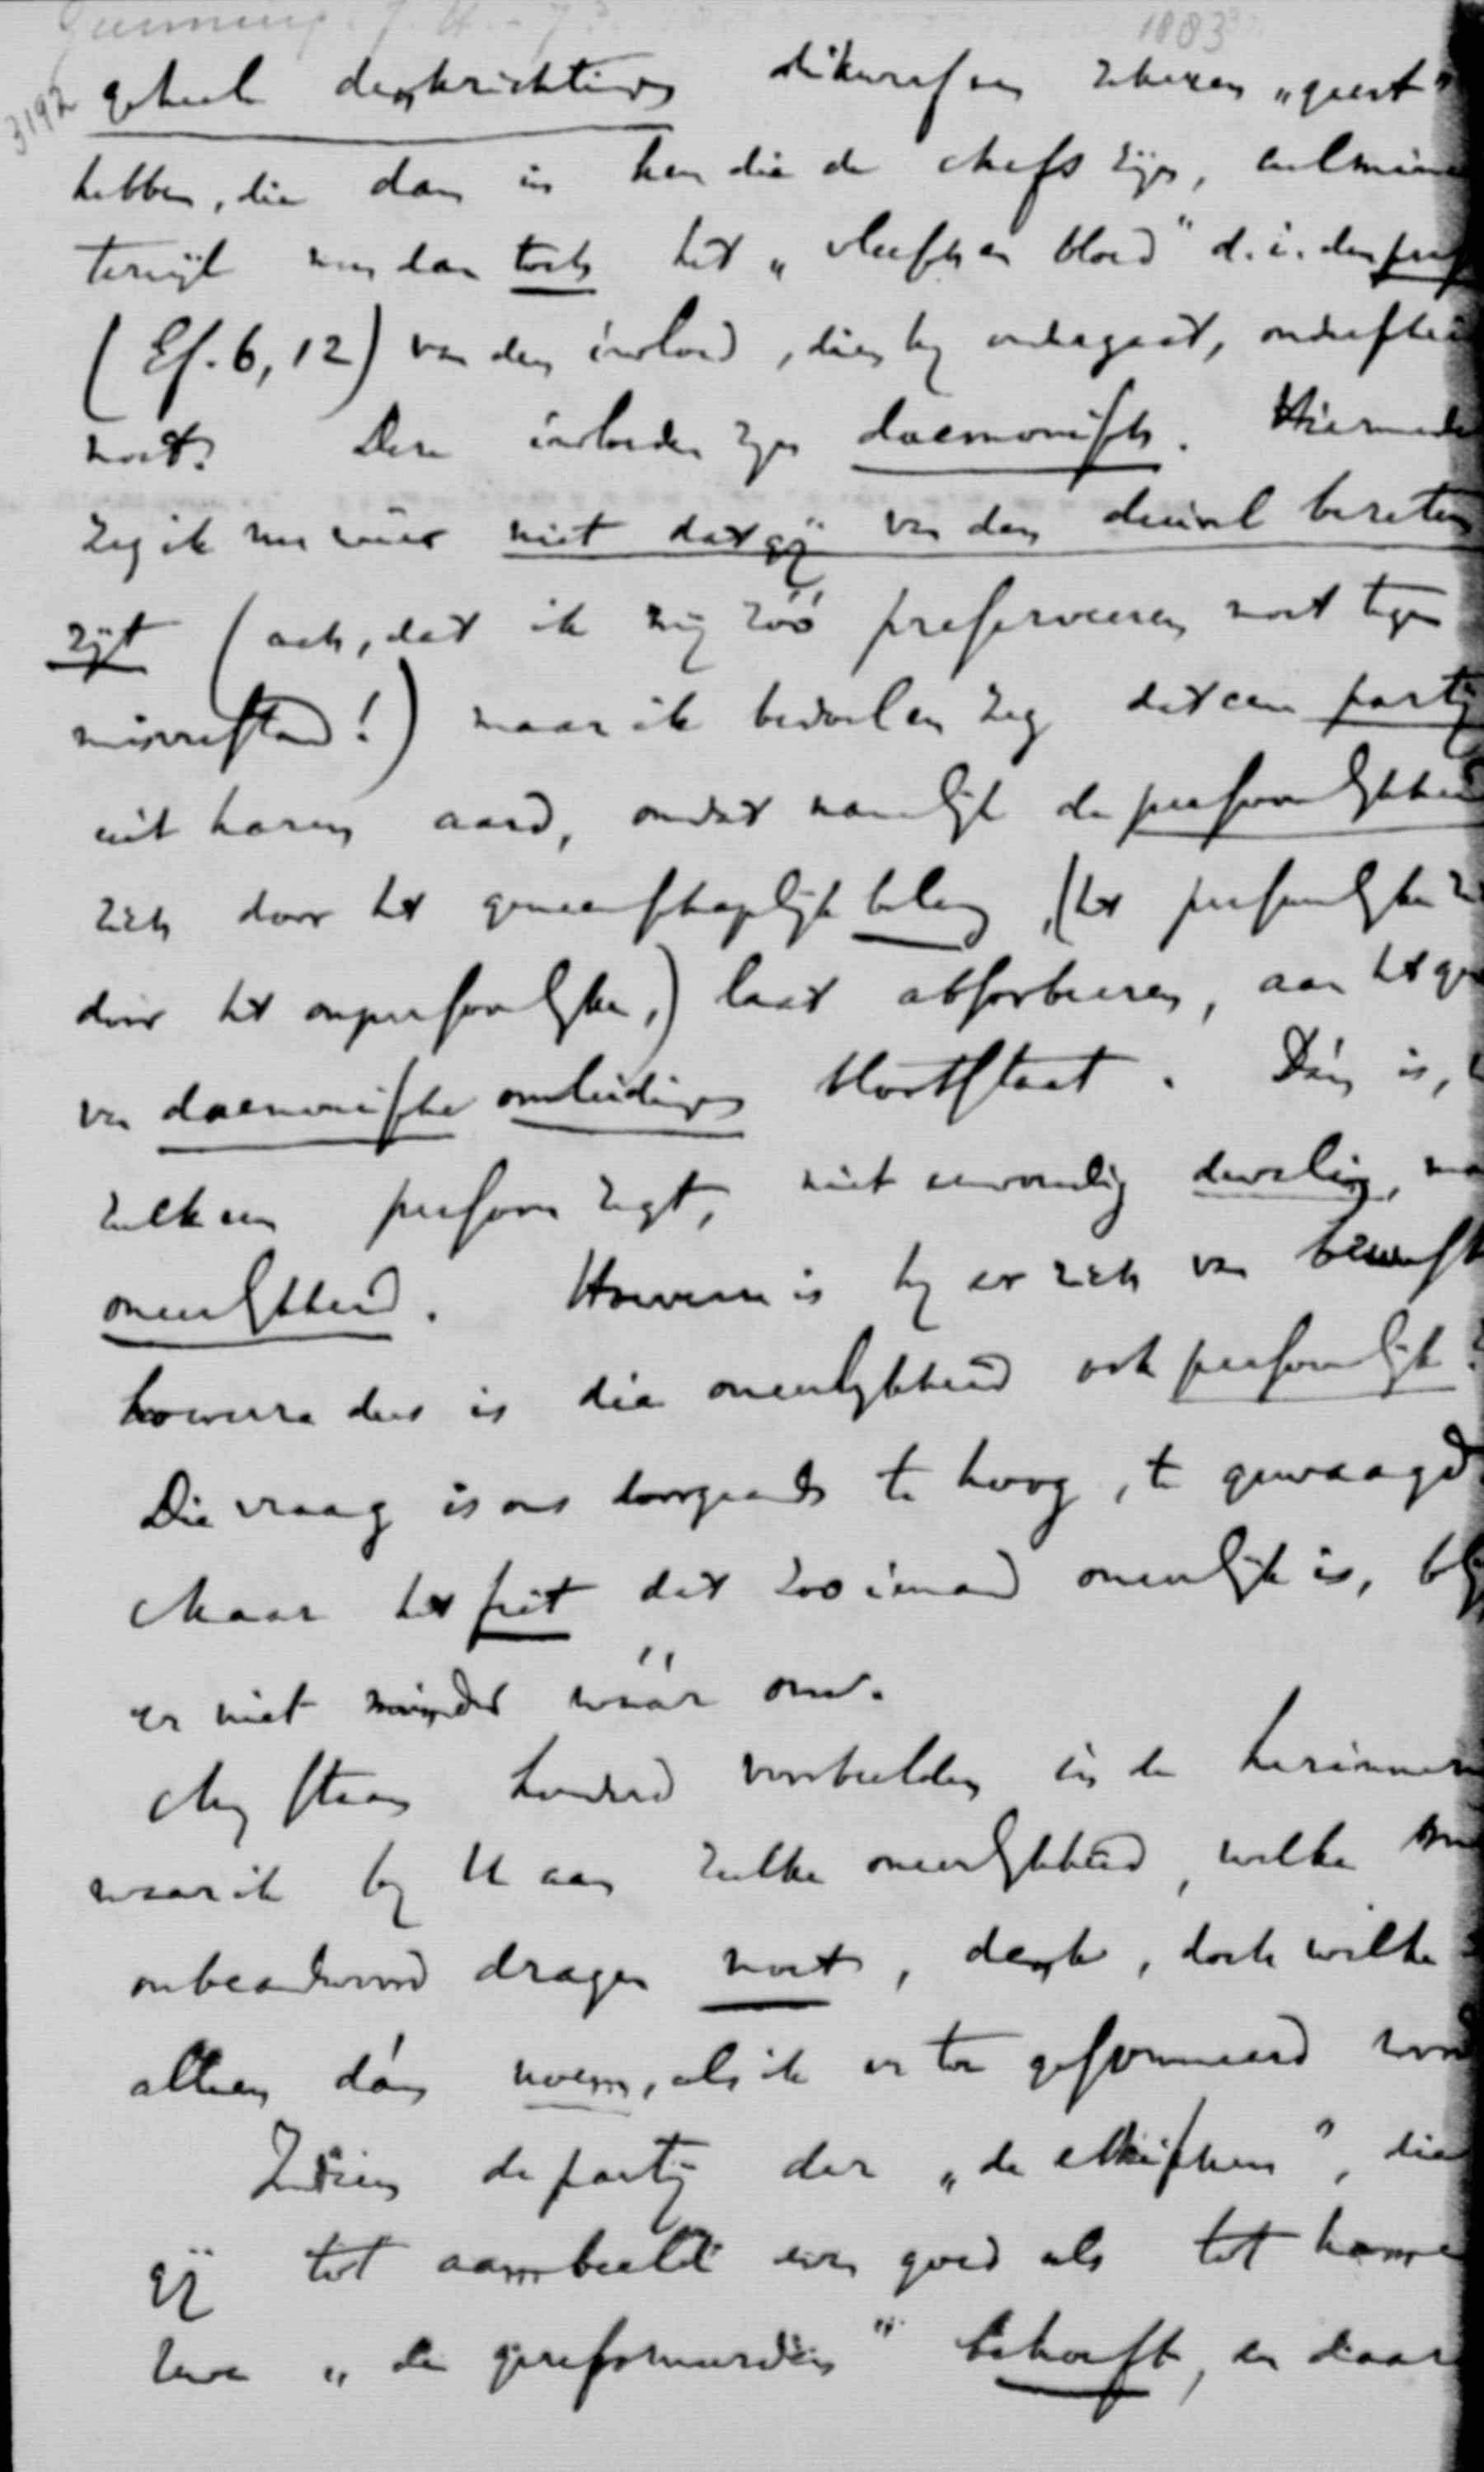 Gunning, J. H. - Jr 1883
3192 geheele denkrichtingen dikwerf een zekeren „geest"
hebben, die dan in hen die de chefs zijn, culmine
terwijl men dan toch het „vleesch en bloed" d. i. den pers
(Ef. 6, 12) van den invloed, dien hij ondergaat, onderschei
moet. Deze invloeden zijn daemonisch. Hiermede
zeg ik nu weer niet dat gij van den duivel bezeten
zijt (ach, dat ik mij zóó preserveeren moet tegen
misverstand!) maar ik bedoel en zeg dat een partij
uit haren aard, omdat namelijk de persoonlijkheid
zich door het gemeenschaplijk belang, (het persoonlijke
door het onpersoonlijke,) laat absorbeeren, aan het ge
van daemonische omleidingen blootstaat. Dán is,
zulk een persoon zegt, niet eenvoudig dwaling, ma
oneerlijkheid. Hoeverre is hij er zich van bewust
hoeverre dus is die oneerlijkheid ook persoonlijk
Die vraag is ons doorgaands te hoog, te gewaagd
Maar het feit dat zoo iemand oneerlijk is, bl
er niet minder wáár om.
Mij staan honderd voorbeelden in de herinner
waar ik bij U aan zulke oneerlijkheid, welke
onbeantwoord dragen moet, denk, doch welke
alleen dán noem, als ik er toe gesommeerd word
Indien de partij der „de ethischen", die
gij tot aambeeld even goed als tot hame
Uwe „de gereformeerden" behoeft, en daar